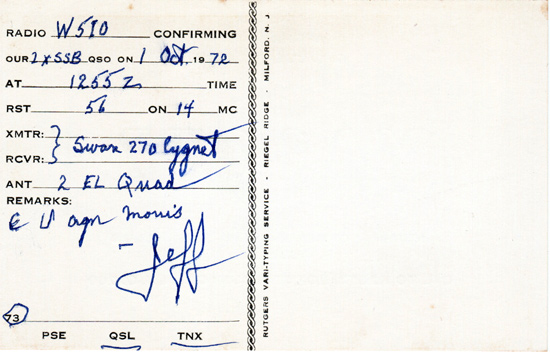 RADIO W5IO CONFIRMING
OUR 2xSSB QSO ON 1 Oct. 1972
AT 1255 Z TIME
RST 56 ON 14 MC
XMTR:
RCVR: Swan 270 Cygnet
ANT 2 EL Quad
REMARKS:
C U agn Morris
- Jeff
73
PSE QSL TNX
RUTGERS VARI-TYPING SERVICE - RIEGEL RIDGE - MILFORD, N. J.